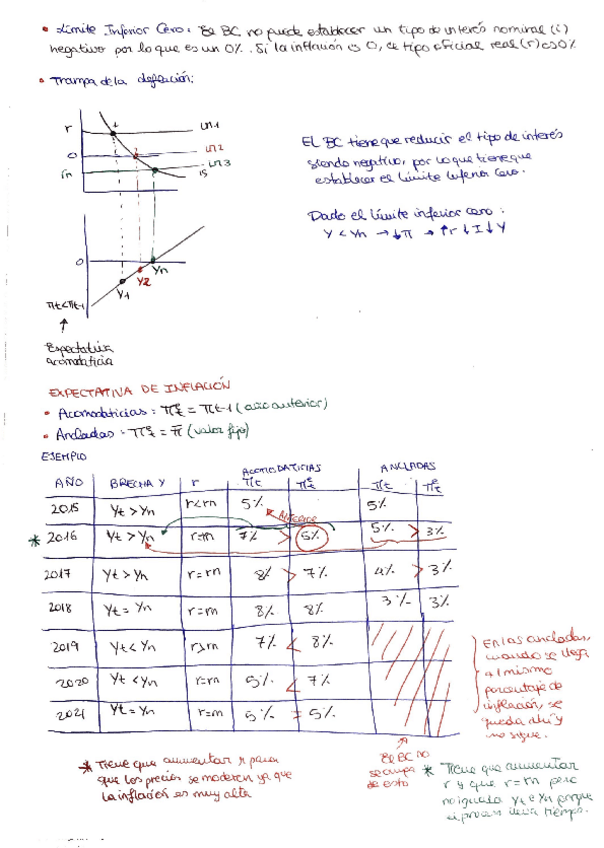 • Límite Inferior Cero: El BC no puede establecer un tipo de interés nominal (i)
negativo por lo que es un 0%. Si la inflación es 0, el tipo oficial real (r) es 0%
• Trampa de la deflación:
r
LM1
0
LM2
rn
LM3
IS
El BC tiene que reducir el tipo de interés
siendo negativo, por lo que tiene que
establecer el Límite Inferior Cero.
Dado el límite inferior cero:
Y < Yn → ↓π → ↑r ↓I ↓Y
0
Yn
Y2
Y1
πt<πt-1
↑
Expectativa
acomodaticia
EXPECTATIVA DE INFLACIÓN
• Acomodaticias: πᵉt = πt-1 (año anterior)
• Ancladas: πᵉt = π̄ (valor fijo)
EJEMPLO
ACOMODATICIAS ANCLADAS
AÑO BRECHA Y r πt πᵉt πt πᵉt
2015 Yt > Yn r<rn 5% 5%
* 2016 Yt > Yn r=rn 7% > 5% 5% > 3%
2017 Yt > Yn r=rn 8% > 7% 4% > 3%
2018 Yt = Yn r=rn 8% 8% 3% 3%
2019 Yt < Yn r>rn 7% < 8%
2020 Yt < Yn r=rn 5% < 7%
2021 Yt = Yn r=rn 5% = 5%
En las ancladas,
cuando se llega
al mismo
porcentaje de
inflación, se
queda ahí y
no sigue.
* Tiene que aumentar r para
que los precios se moderen ya que
la inflación es muy alta
El BC no
se ocupa
de esto
* Tiene que aumentar
r y que r=rn pero
no iguala Yt e Yn porque
el proceso lleva tiempo.